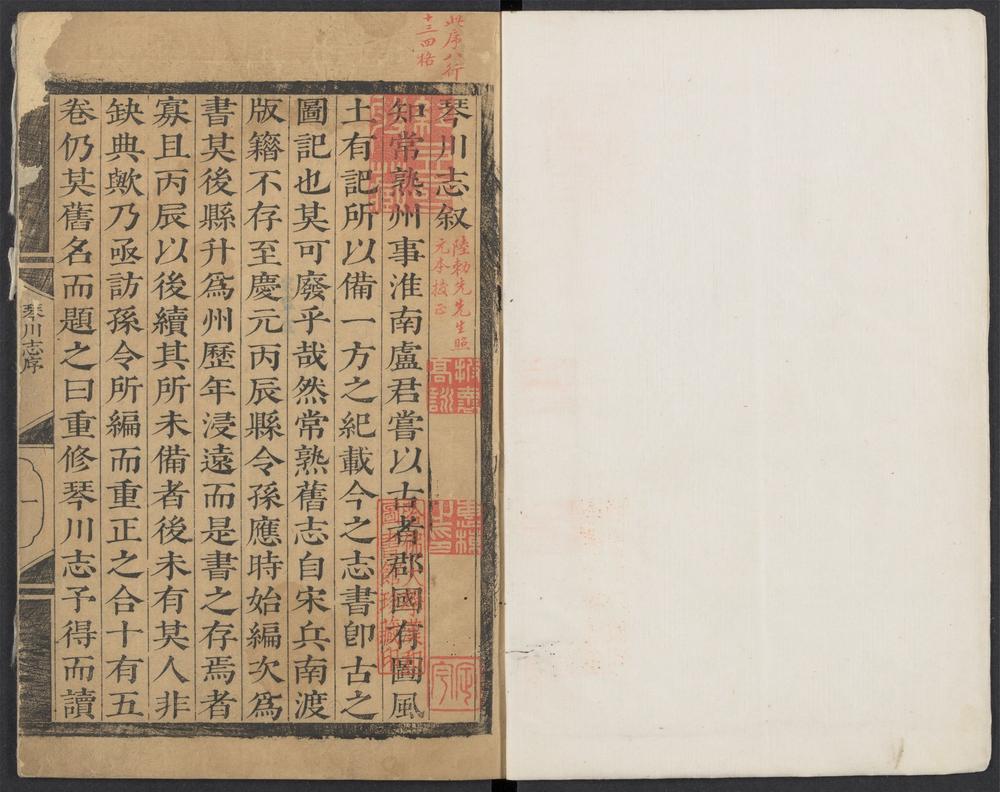 此序八行
十三四格
琴川志叙
陸勑先先生照
元本挍正
知常熟州事淮南盧君嘗以古者郡國有圖風
土有記所以備一方之紀載今之志書卽古之
圖記也其可廢乎哉然常熟舊志自宋兵南渡
版籍不存至慶元丙辰縣令孫應時始編次爲
書其後縣升爲州歷年浸遠而是書之存焉者
寡且丙辰以後續其所未備者後未有其人非
缺典歟乃亟訪孫令所編而重正之合十有五
卷仍其舊名而題之曰重修琴川志予得而讀
琴川志序
一